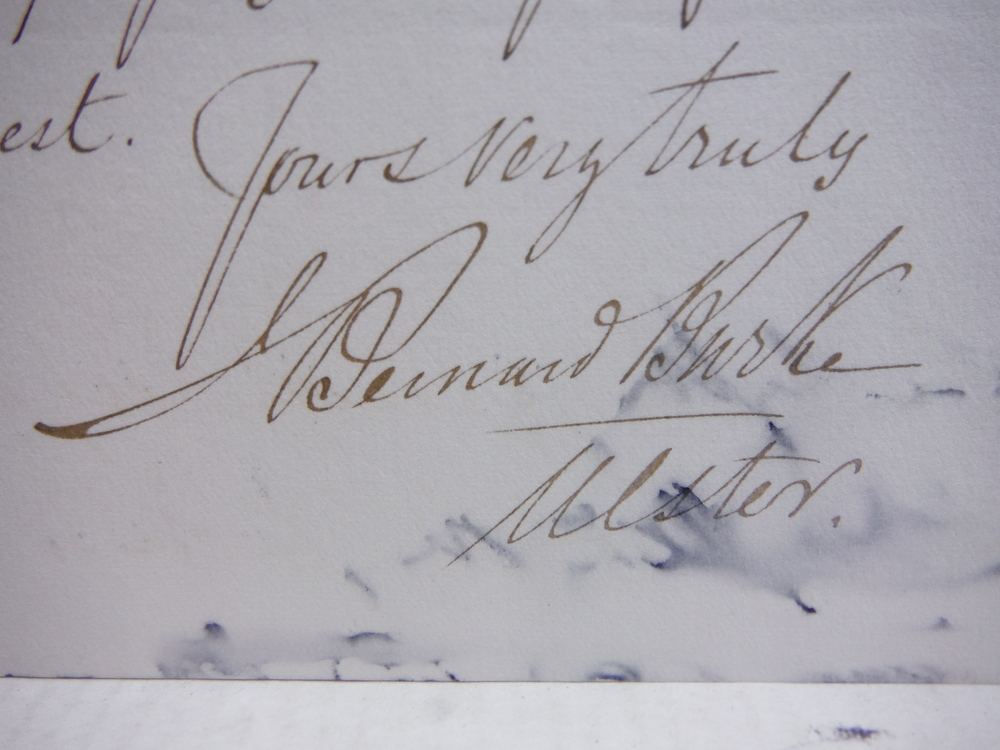 est. Yours very truly
J Bernard Burke
Ulster.